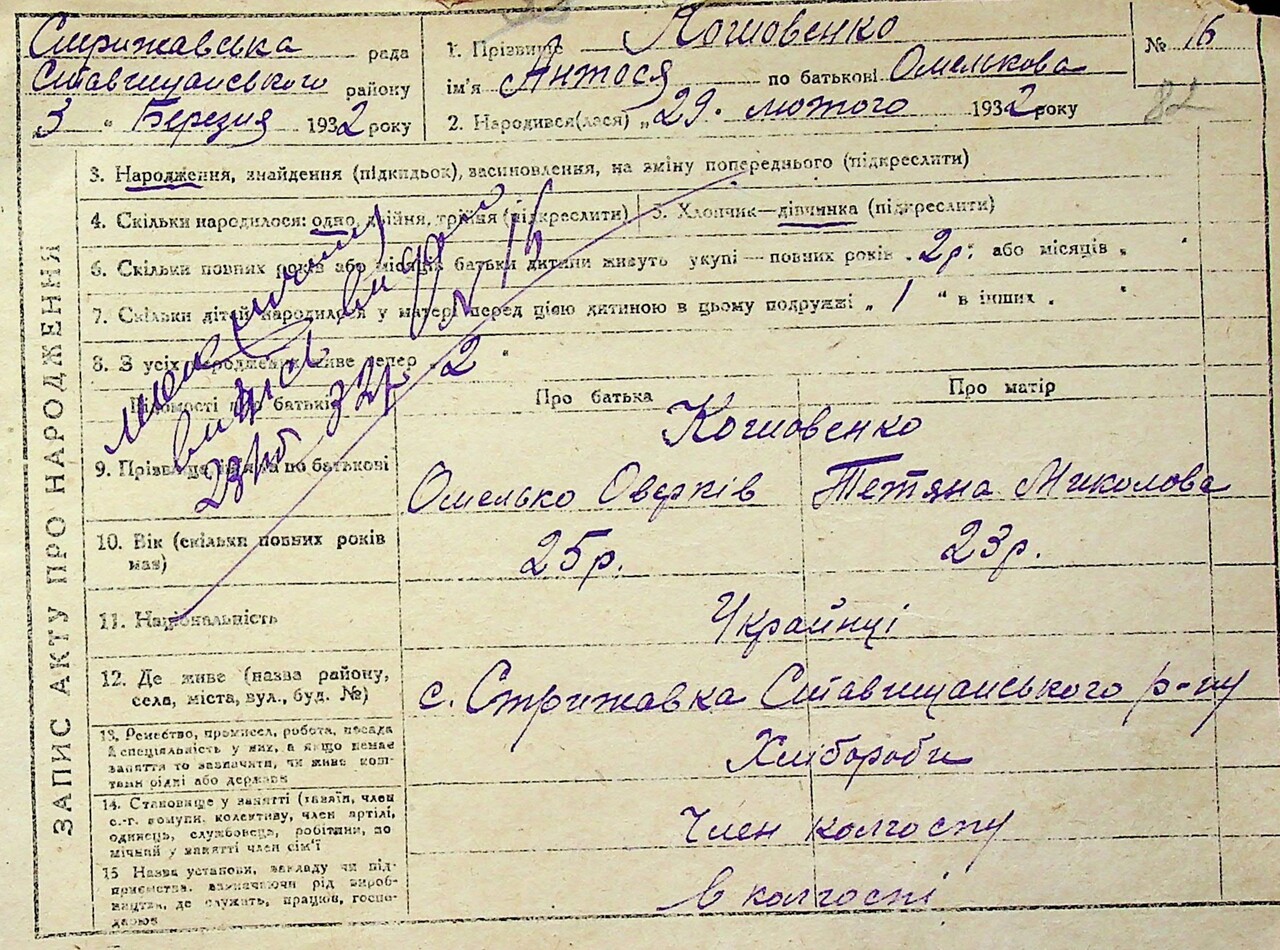 Стрижавська рада
Ставищанського району
„ 3 " Березня 1932 року
1. Прізвище Когшовенко
ім'я Антося по батькові Омелькова
2. Народився(лася) „ 29. лютого 1932 року
№ 16
82
ЗАПИС АКТУ ПРО НАРОДЖЕННЯ
3. Народження, знайдення (підкидьок), засиновлення, на зміну попереднього (підкреслити)
4. Скільки народилося: одно, двійня, трійня (підкреслити) 5. Хлопчик—дівчинка (підкреслити)
6. Скільки повних років або місяців батьки дитини живуть укупі — повних років „ 2р: або місяців „ "
7. Скільки дітей народилося у матері перед цією дитиною в цьому подружжі „ 1 " в інших „ "
8. З усіх народжених живе тепер „ 2 "
Відомості про батьків Про батька Про матір
9. Прізвище, ім'я та по батькові
Когшовенко
Омелько Оверків Тетяна Миколова
10. Вік (скільки повних років має)
25р. 23р.
11. Національність
Українці
12. Де живе (назва району,
села, міста, вул., буд. №)
с. Стрижавка Ставищанського р-ну
13. Ремество, промисел, робота, посада
й спеціяльність у них, а якщо немає
заняття то зазначити, чи живе кош-
тами рідні або держави
Хлібороби
14. Становище у занятті (хазяїн, член
с.-г. комуни, колективу, член артілі,
одинець, службовець, робітник, по
мічний у занятті член сім'ї
Член колгоспу
15 Назва установи, закладу чи під-
приємства, зазначаючи рід вироб-
ництва, де служить, працює, госпо-
дарює
в колгоспі